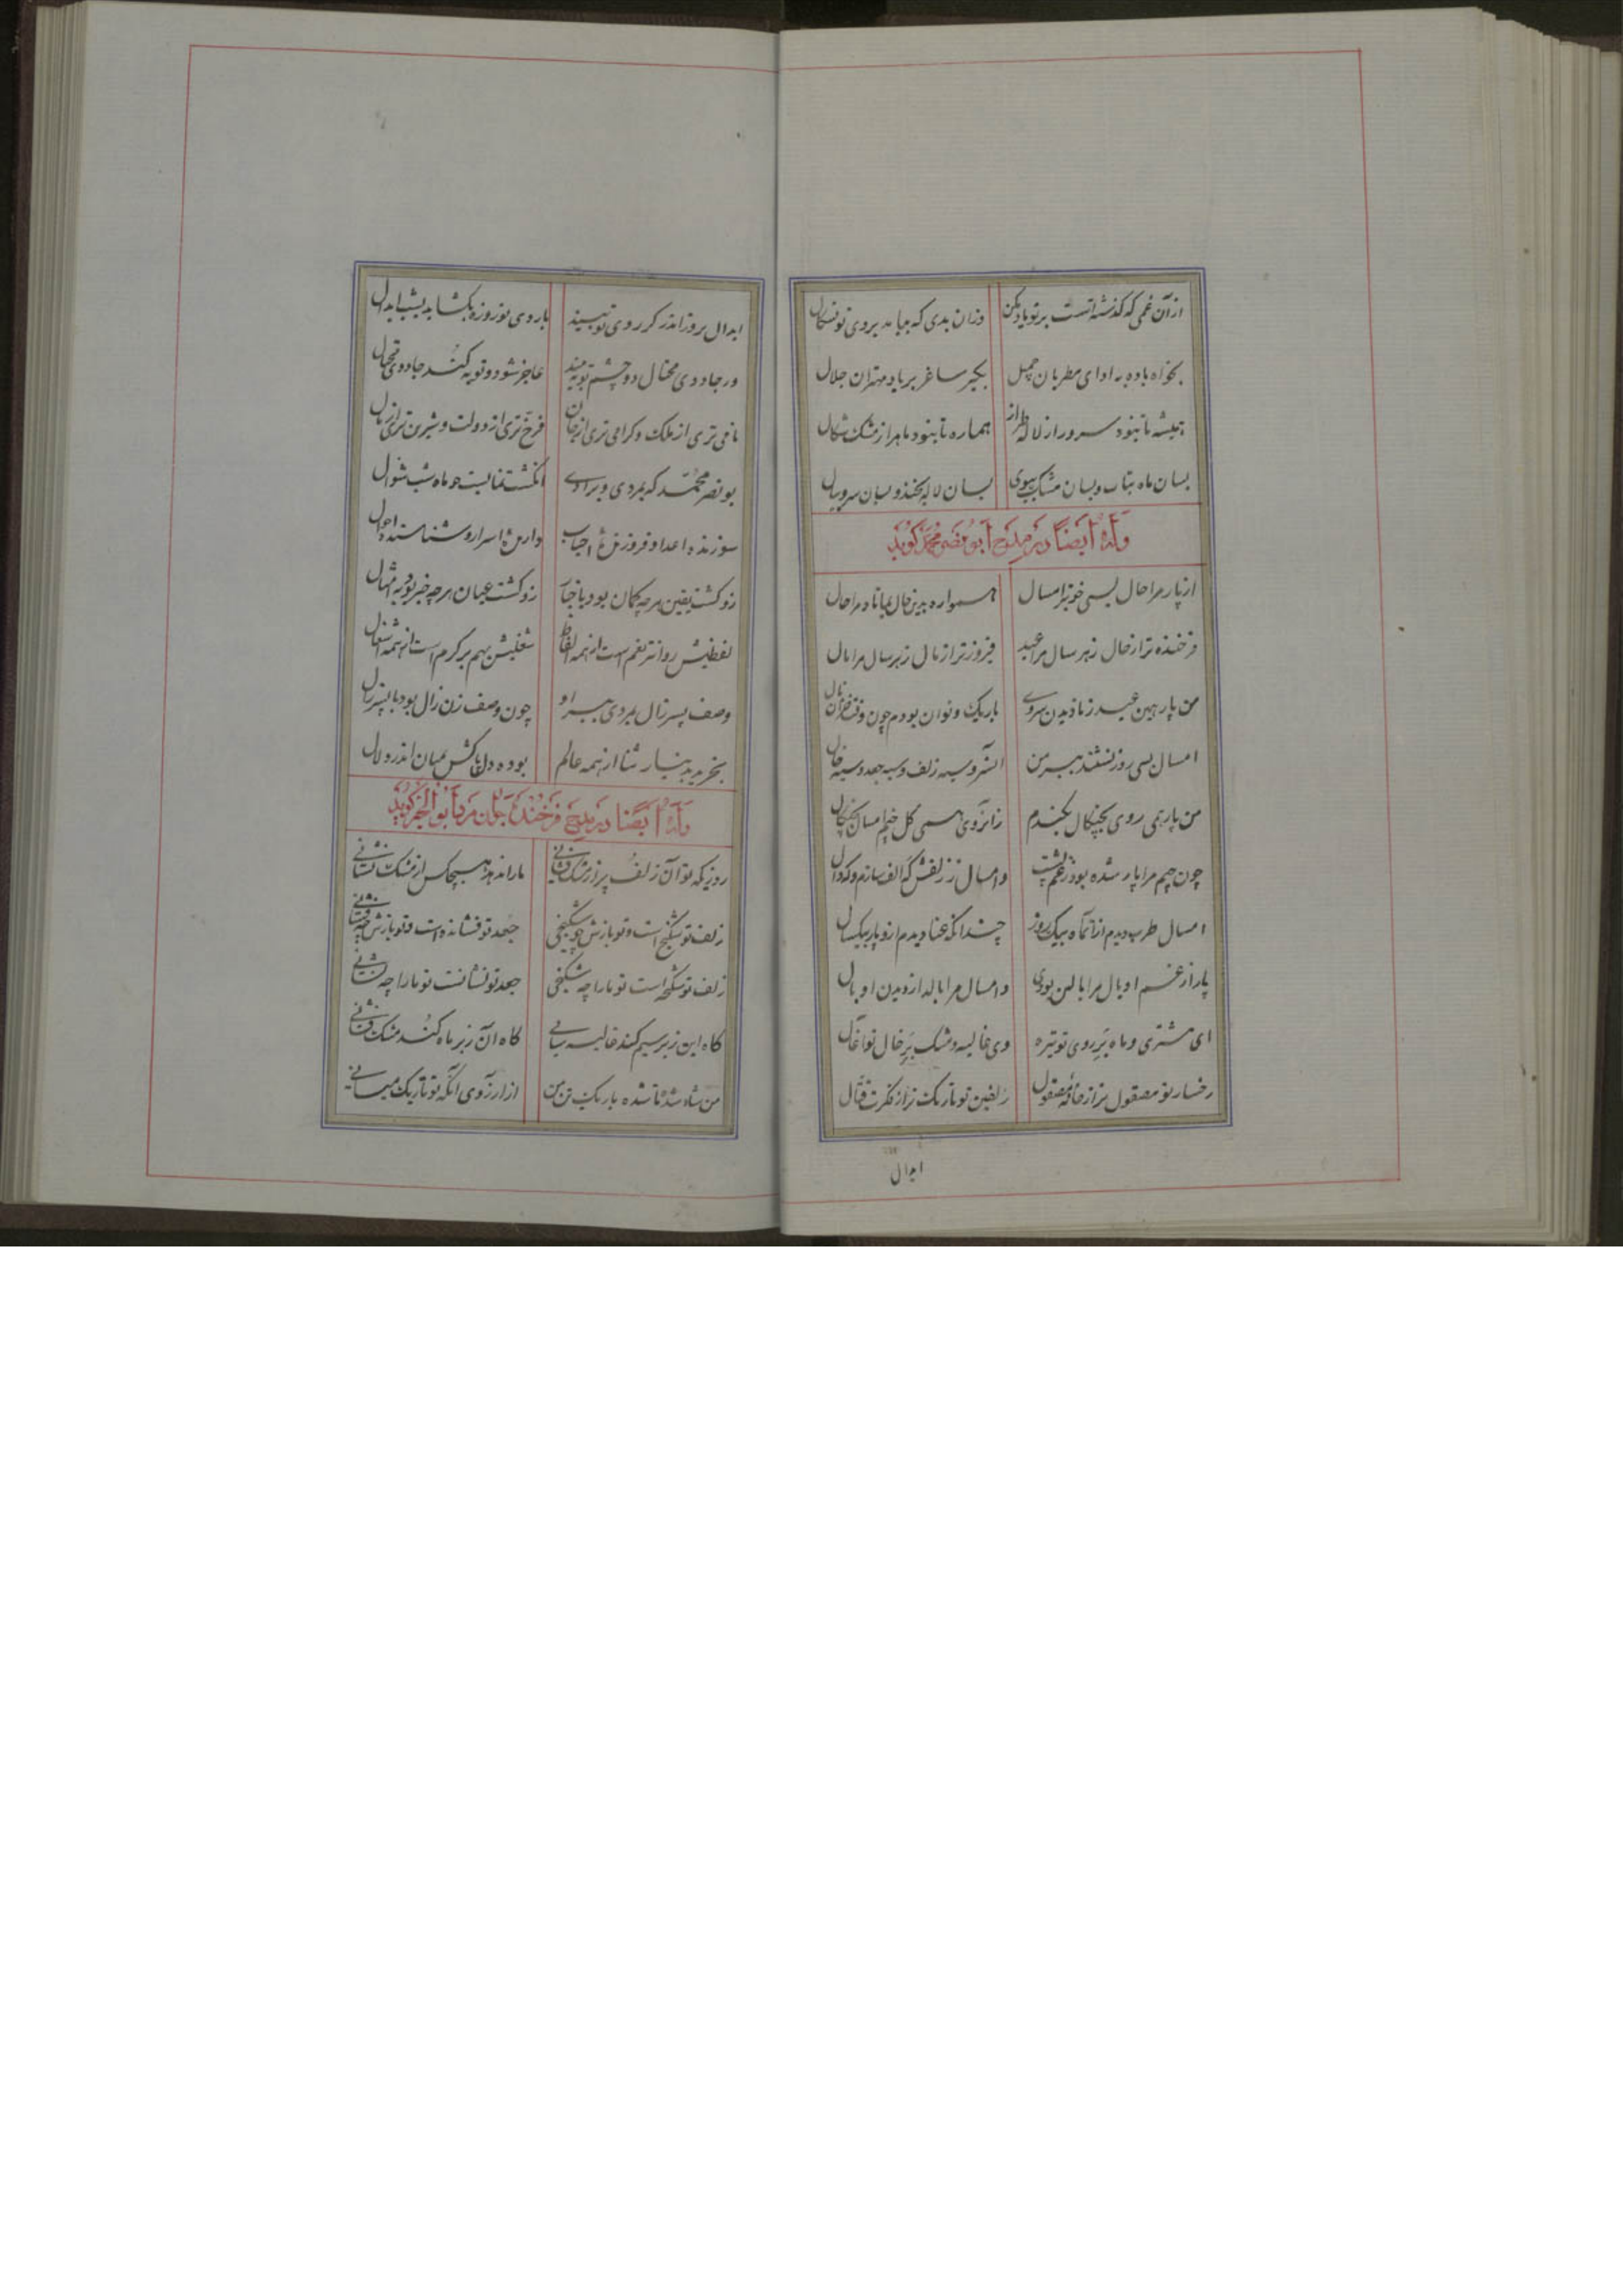 از آن غمی که گذشتست بر تو یاد مکن وزان بدی که بیامد بروی تو
بخواه باده به اوای مطربان جمیل بگیر ساغر بر یاد مهتران جلال
همیشه تا نبود سرو را ز لاله طراز هماره تا نبود ماه را ز مشک شکال
بسان ماه بتاب و بسان مشک ببوی بسان لاله بخند و بسان سرو ببال
وله ایضا در مدح ابو نصر محمد گوید
از پار مرا حال بسی خوبتر امسال همواره بدین حال بماناد مرا حال
فرخنده تر از حال ز هر سال مرا عید فیروزتر از مال ز هر سال مرا مال
من پار بهین عید ز نادیدن سروی باریک و نوان بودم چون وقت خزان نال
امسال بسی روز نشستند ببر من سیه زلف و سیه جعد و سیه خال
من پار همی روی بچنگال بکندم زانروی همی گل چنم امسال بچنگال
چون جیم مرا پار شده بود ز غم پشت وامسال ز زلفش گه الف سازم و گه دال
امسال طرب دیدم از آنماه بیک روز چندانکه عنا دیدم ازو پار بیکسال
پار از غم او بال مرا بالین بودی وامسال مرا بالد از دیدن او بال
ای مشتری و ماه بر روی تو تیره وی غالیه و مشک بر خال تو آخال
رخسار تو مصقول تر از خانه مصقول زلفین تو تاریک تر از فکرت قتال
ابدال
ابدال بروز اندر گر روی تو بیند با روی تو روزه بگشاید بشب ابدال
ور جادوی محتال دو چشم تو به بیند عاجز شود و توبه کند جادوی محتال
نامی تری از ملک و گرامی تری از جان فرخ تری از دولت و شیرین تری از مال
بو نصر محمد که بمردی و برادی انگشت نمایست چو ماه شب شوال
سوزنده اعدا و فروزنده احباب دارنده اسرار و شناسنده احوال
زو گشت یقین هرچه گمان بود باخبار زو گشت عیان هرچه خبر بود بامثال
لفظیش روانتر نعم است از همه الفاظ شغلیش بهم بر کرم است از همه اشغال
وصف پسر زال بمردی بر او چون وصف زن زال بود با پسر زال
بخرید بدینار ثنا از همه عالم بوده دل پاکش میان اندر و لال
وله ایضا در مدح فرخنده جوان مرد ابو الخیر گوید
روزیکه تو آن زلف پر از مشک فشانی ما را ندهد هیچکس از مشک نشانی
زلف تو شکنج است و تو بازش چو شکنجی جعد تو فشانده است و تو بازش چه فشانی
زلف تو شکنجه است تو ما را چه شکنجی جعد تو نشانست تو ما را چه نشانی
گاه این زبر سیم کند غالیه سایی گاه آن زبر ماه کند مشک فشانی
من شاد شده تا شده باریک تن من از آرزوی آنکه تو باریک میانی